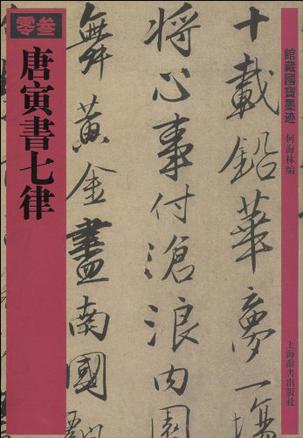 零叁
唐寅書七律
館藏國寶墨迹
何海林編
上海辭書出版社
十載鉛華夢一場
將心事付滄浪內園
舞黃金盡南國